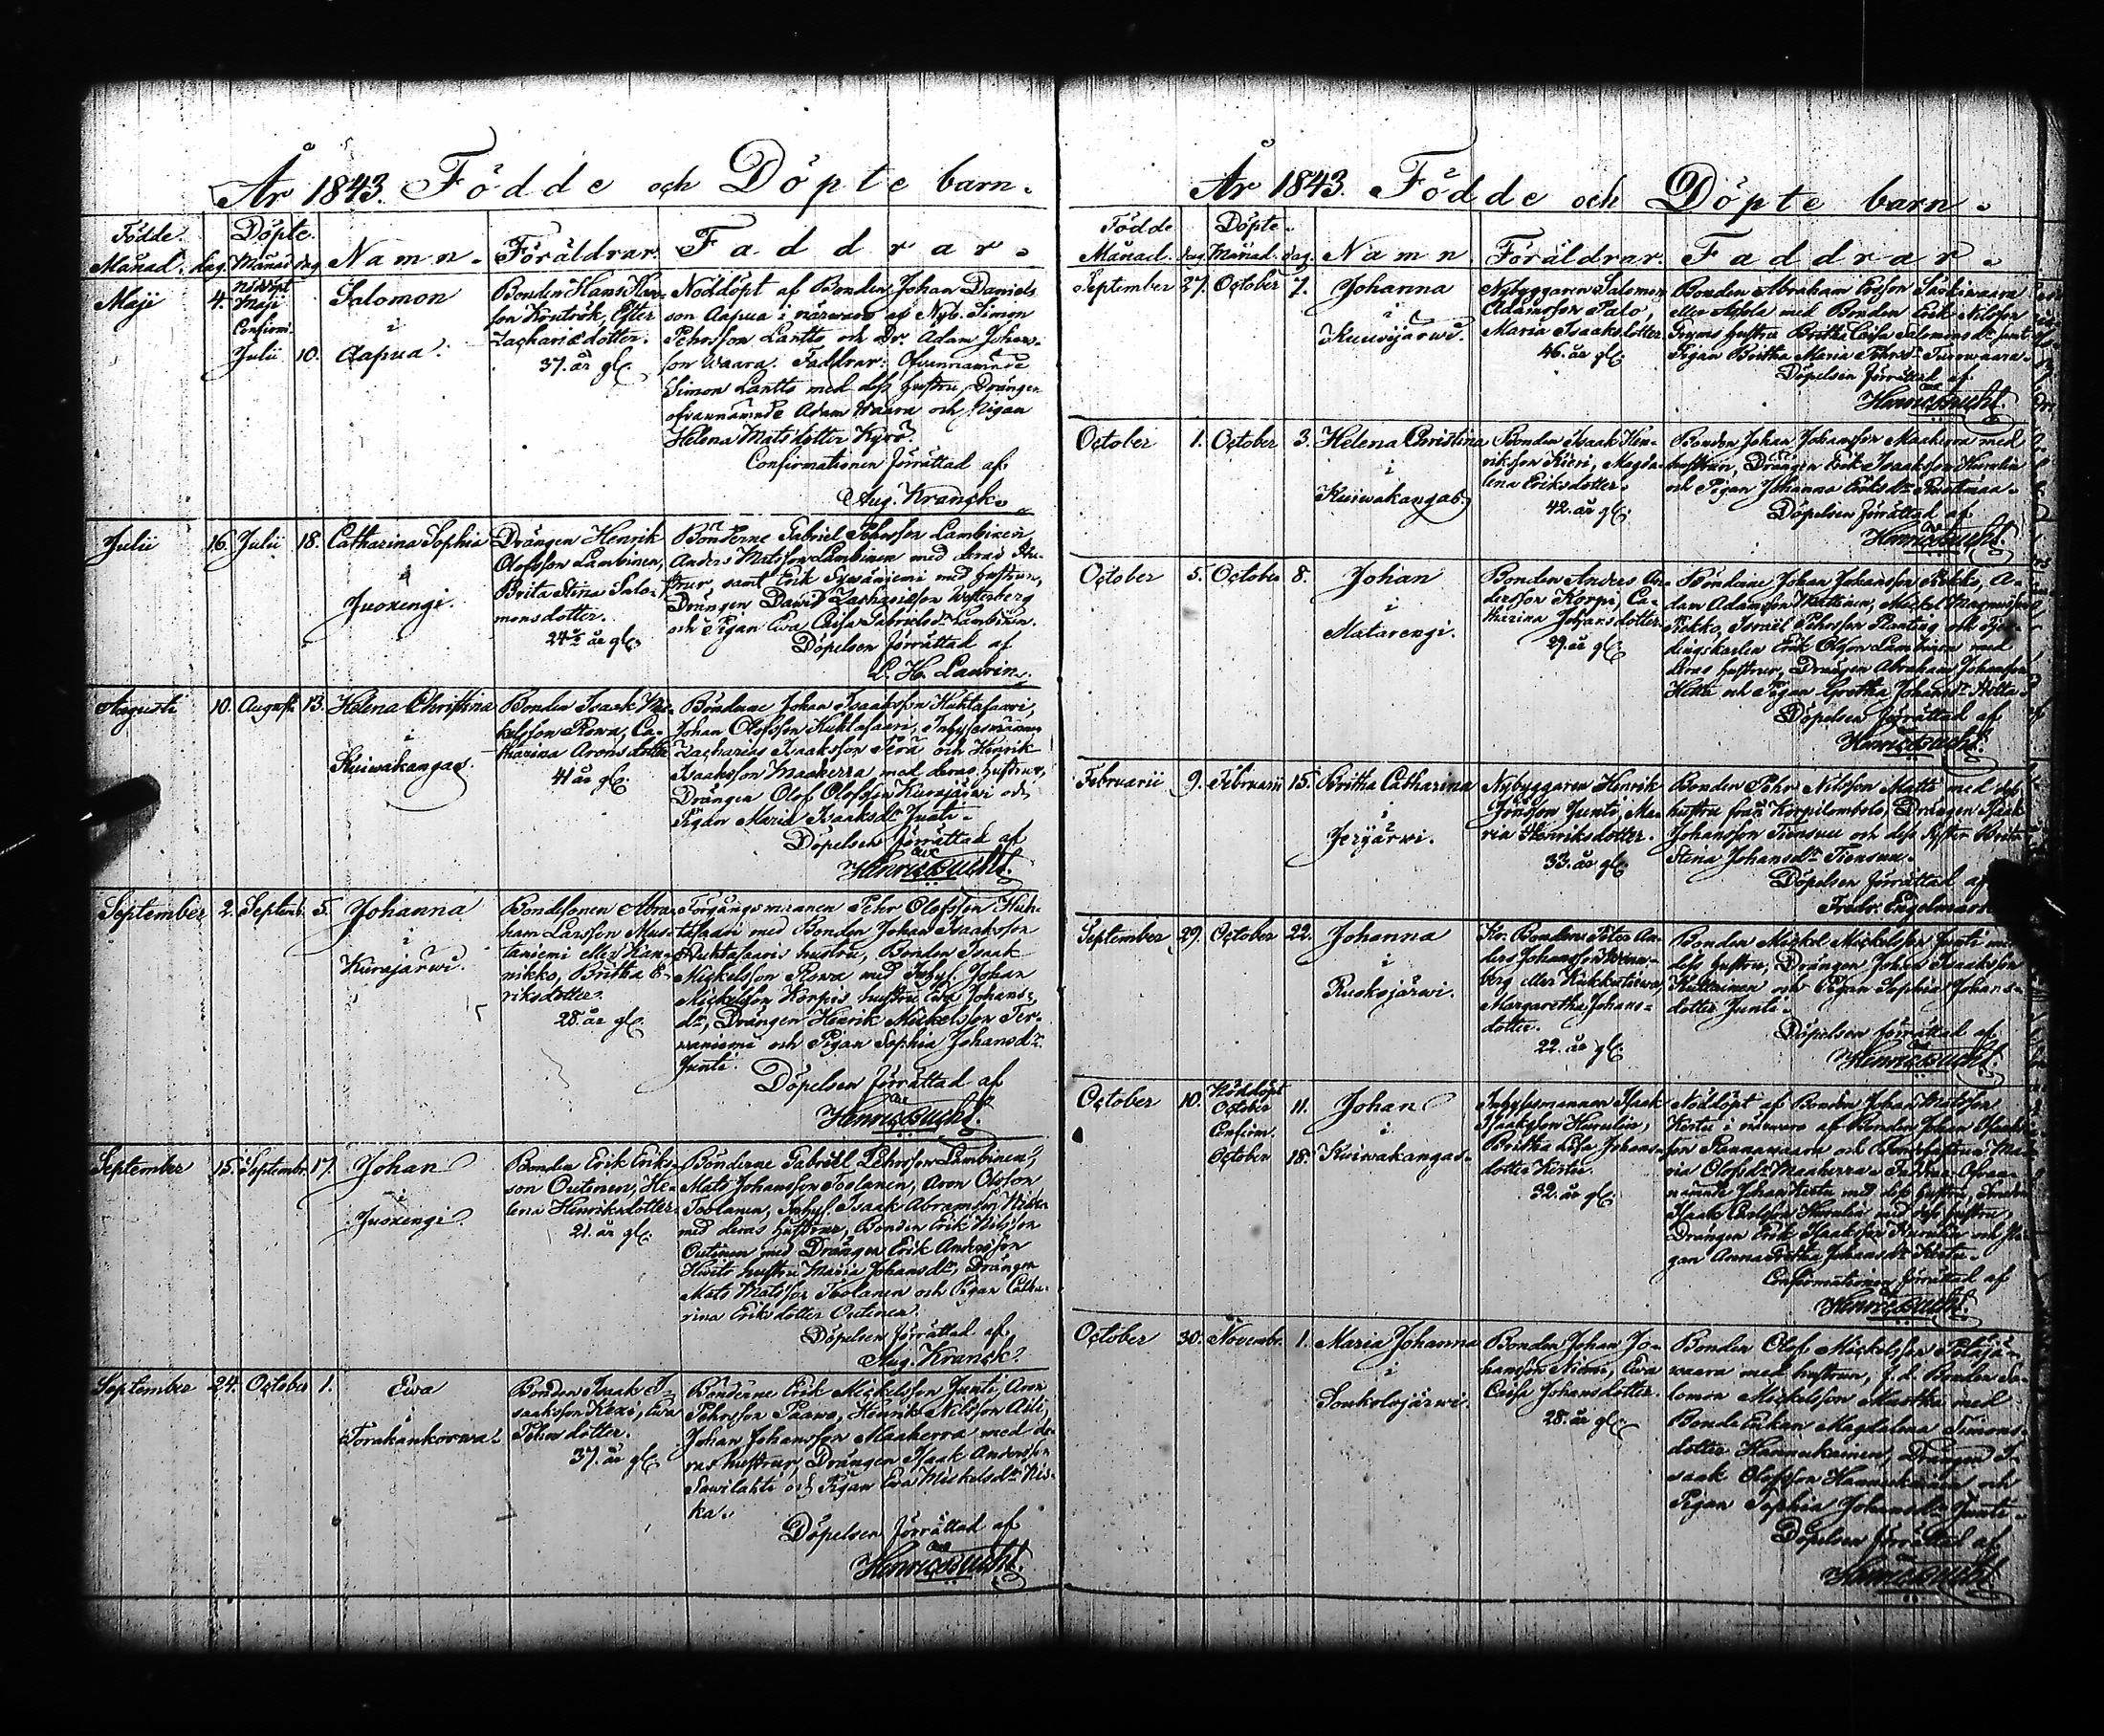 År 1843. Födde och Döpte barn.
Födde. Döpte.
Månad. dag. Månad dag Namn. Föräldrar. Faddrar.
Maji 4. Nöddöpt Maji Confirm. Julii 10.
Salomon
i
Aapua.
Bonden Hans
son
Zachariædotter.
37. år gl.
Nöddöpt af Bonden Johan Daniels
son Aapua i närwaro af Nyb. Simon
Pehrsson Lantto och Dr. Adam Johans-
son Waara. Faddrar: Ofvannämnde
Simon Lantto med dess hustru, Drängen
ofvannämnde Adam Waara och Pigan
Helena Matsdotter Kyrö.
Confirmationen förrättad af
Aug. Kranck.
Julii 16. Julii 18.
Catharina Sophia
i
Juoxengi.
Drängen Henrik
Olofsson Lambinen,
Brita Stina Salo-
monsdotter.
24 år gl.
Bönderne Gabriel Pehrsson Lambinen,
Anders Matsson Lambinen med deras hu-
strur, samt Erik Sywäniemi med hustrun,
Drängen David Zachariæson Westerberg
och Pigan Ewa Caisa Gabrielsdr Lambinen.
Döpelsen förrättad af
L. H. Laurin.
Augusti 10. August 13.
Helena Christina
i
Kuiwakangas
Bonden Isaak Mi-
kelsson Rowa, Ca-
tharina Aronsdotter
41 år gl.
Bönderne Johan Isaaksson Huhtasaari,
Johan Olofsson Huhtasaari, Inhysesmännen
Zacharias Isaaksson Perä och Henrik
Isaaksson Maaherra med deras hustrur,
Drängen Olof Olofsson Kurajärwi och
Pigan Maria Isaaksdr Junti.
Döpelsen förrättad af
Henric Bucht.
September 2. Septemb. 5.
Johanna
i
Kurajärwi.
Bondesonen Abra-
ham Larsson Mus-
taniemi eller Kan-
nikko, Britha E-
riksdotter.
28. år gl.
Förgångsmannen Pehr Olofsson Huh-
tasaari med Bonden Johan Isaaksson
Huhtasaaris hustru, Bonden Isaak
Mickelsson Rowa med Inhys. Johan
Mickelsson Korpis hustru Ewa Johans-
dr, Drängen Henrik Mickelsson Ter-
waniemi och Pigan Sophia Johansdr
Junti.
Döpelsen förrättad af
Henric Bucht.
September 15. Septembr. 17.
Johan
i
Juoxengi.
Bonden Erik Eriks-
son Outinen, He-
lena Henriksdotter.
21. år gl.
Bönderne Gabriel Pehrsson Lambinen,
Mats Johansson Toolanen, Aron Olsson
Toolanen, Inhys. Isaak Abramsson Niska
med deras hustrur, Bonden Erik Nilsson
Outinen med Drängen Erik Andersson
Hwits hustru Maria Johansdr, Drängen
Mats Matsson Toolanen och Pigan Catha-
rina Eriksdotter Outinen.
Döpelsen förrättad af
Aug. Kranck.
September 24. October 1.
Ewa
i
Torakankorwa.
Bonden Isaak I-
saaksson Kexi, Ewa
Pehrsdotter.
37. år gl.
Bönderne Erik Mickelsson Junti, Aron
Pehrsson Paawo, Henrik Nilsson Aili,
Johan Johansson Maaherra med de-
ras hustrur, Drängen Isaak Andersson
Sawilahti och Pigan Ewa Mickelsdr Nis-
ka.
Döpelsen förrättad af
Henric Bucht.
År 1843. Födde och Döpte barn.
Födde Döpte.
Månad. dag. Månad. dag. Namn. Föräldrar. Faddrar.
September 27. October 7.
Johanna
i
Kuusijärwi.
Nybyggaren Salomon
Adamsson Palo,
Maria Isaaksdotter.
46. år gl.
Bonden Abraham Ersson
eller med Bonden Erik Nilsson
hustru Britha Caisa Salomonsdr samt
Pigan Britha Maria Pehrsdr
Döpelsen förrättad af
Henric Bucht.
October 1. October 3.
Helena Christina
i
Kuiwakangas.
Bonden Isaak Hen-
riksson Kieri, Magda-
lena Eriksdotter.
42. år gl.
Bonden Johan Johansson Maaherra med
hustrun, Drängen Erik Isaaksson Hurulia
och Pigan Johanna Eriksdr
Döpelsen förrättad af
Henric Bucht.
October 5. October 8.
Johan
i
Matarengi.
Bonden Anders An-
dersson Korpi, Ca-
tharina Johansdotter.
29. år gl.
Bönderne Johan Johansson Rekko, A-
dam Adamsson Martinen, Mickel Magnusson
Israel Pehrsson Planting och Fjer-
dingskarlen Erik Olsson Lambinen med
deras hustrur, Drängen Abraham Johansson
och Pigan Gretha Johansdr
Döpelsen förrättad af
Henric Bucht.
Februarii 9. Februarii 15.
Britha Catharina
i
Jerijärwi.
Nybyggaren Henrik
Jönsson Junti, Ma-
ria Henriksdotter.
33. år gl.
Bonden Pehr Nilsson Matti med dess
hustru från Korpilombolo, Drängen Isaak
Johansson Tiensuu och dess syster Brita
Stina Johansdr Tiensuu.
Döpelsen förrättad af
Fredr. Engelmark
September 29. October 22.
Johanna
i
Ruskojärwi.
Kr. Bonden Peter An-
ders Johansson
berg eller
Margaretha Johans-
dotter.
22. år gl.
Bonden Mickel Mickelsson Junti med
dess hustru, Drängen Johan Isaaksson
och Pigan Sophia Johans-
dotter Junti.
Döpelsen förrättad af
Henric Bucht.
October 10. Nöddöpt October 11. Confirm. October 18.
Johan
i
Kuiwakangas.
Inhysesmannen Isaak
Isaaksson Hurulia,
Britha Lisa Johans-
dotter Kerttu.
32. år gl.
Nöddöpt af Bonden Johan Matsson
Kerttu i närwaro af Bonden Johan Isaaks-
son Rannawaara och Bondhustrun Ma-
ria Olofsdr Maaherra. Faddrar: Ofvan-
nämnde Johan Kerttu med dess hustru, Bonden
Isaak Carlsson Hurulia med dess hustru,
Drängen Erik Isaaksson Hurulia och Pi-
gan Anna Britha Johansdr Kerttu.
Confirmationen förrättad af
Henric Bucht.
October 30. Novembr. 1.
Maria Johanna
i
Soukolojärwi.
Bonden Johan Jo-
hansson Niemi, Ewa
Caisa Johansdotter.
28. år gl.
Bonden Olof Mickelsson
waara med hustrun, f.d. Bonden Sa-
lomon Mickelsson Mustka med
Bonde Enkan Magdalena Simons-
dotter Hannukainen, Drängen I-
saak Olofsson Hannukainen och
Pigan Sophia Johansdr Junti.
Döpelsen förrättad af
Henric Bucht.